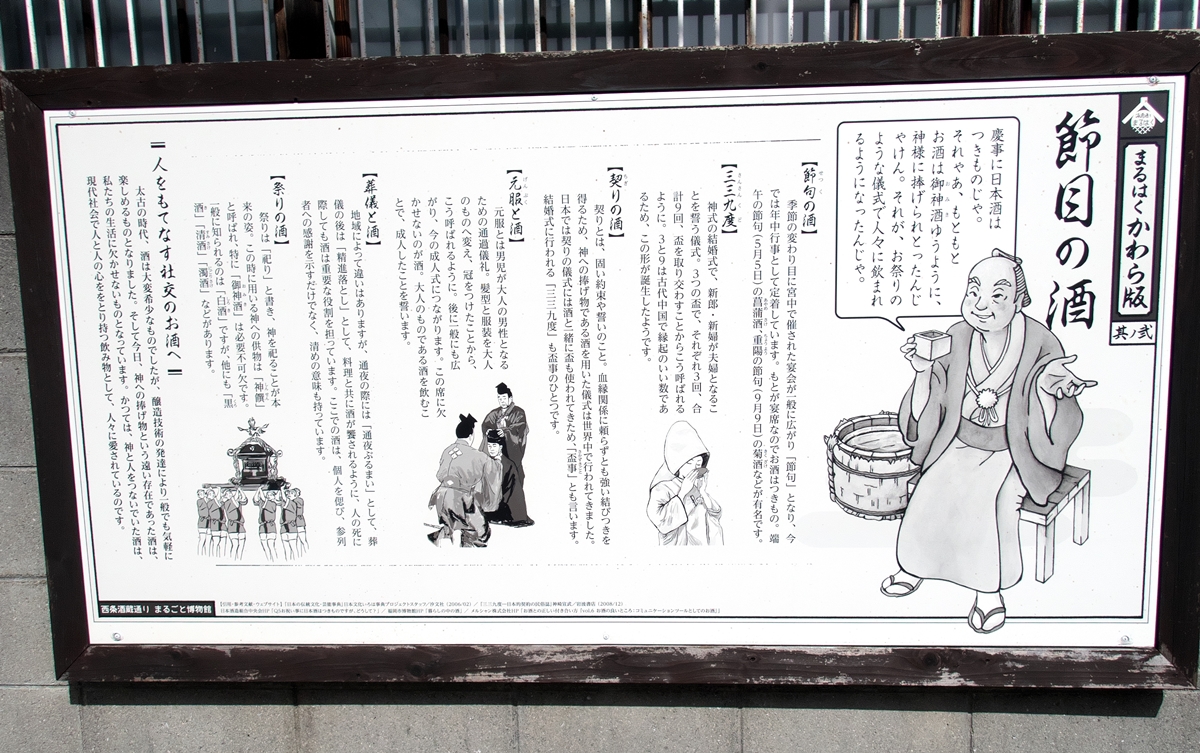 まるはくかわら版
其ノ弐
節目の酒
慶事に日本酒は
つきものじゃ。
それゃあ、もともと
お酒は御神酒ゆうように、
神様に捧げられとったんじ
ゃけん。それが、お祭りの
ような儀式で人々に飲まれ
るようになったんじゃ。
【節句の酒】
季節の変わり目に宮中で催された宴会が一般に広がり「節句」となり、今
では年中行事として定着しています。もとが宴席なのでお酒はつきもの。端
午の節句(5月5日)の菖蒲酒、重陽の節句(9月9日)の菊酒などが有名です。
【三三九度】
神式の結婚式で、新郎・新婦が夫婦となるこ
とを誓う儀式。3つの盃で、それぞれ3回、合
計9回、盃を取り交わすことからこう呼ばれる
ように。3と9は古代中国で縁起のいい数であ
るため、この形が誕生したようです。
【契りの酒】
契りとは、固い約束や誓いのこと。血縁関係に頼らずとも強い結びつきを
得るため、神への捧げ物である酒を用いた儀式は世界中で行われてきました。
日本では契りの儀式には酒と一緒に盃も使われてきたため、「盃事」とも言います。
結婚式に行われる「三三九度」も盃事のひとつです。
【元服と酒】
元服とは男児が大人の男性となる
ための通過儀礼。髪型と服装を大人
のものへ変え、冠をつけたことから、
こう呼ばれるように。後に一般にも広
がり、今の成人式につながります。この席に欠
かせないのが酒。大人のものである酒を飲むこ
とで、成人したことを誓います。
【葬儀と酒】
地域によって違いはありますが、通夜の際には「通夜ぶるまい」として、葬
儀の後は「精進落とし」として、料理と共に酒が饗されるように、人の死に
際しても酒は重要な役割を担っています。ここでの酒は、個人を偲び、参列
者への感謝を示すだけでなく、清めの意味も持っています。
【祭りの酒】
祭りは「祀り」と書き、神を祀ることが本
来の姿。この時に用いる神への供物は「神饌」
と呼ばれ、特に「御神酒」は必要不可欠です。
一般に知られるのは「白酒」ですが、他にも「黒
酒」「清酒」「濁酒」などがあります。
人をもてなす社交のお酒へ
太古の時代、酒は大変希少なものでしたが、醸造技術の発達により一般でも気軽に
楽しめるものとなりました。そして今日、神への捧げ物という遠い存在であった酒は、
私たちの生活に欠かせないものとなっています。かつては、神と人をつないでいた酒は、
現代社会で人と人の心をとり持つ飲み物として、人々に愛されているのです。
西条酒蔵通り まるごと博物館